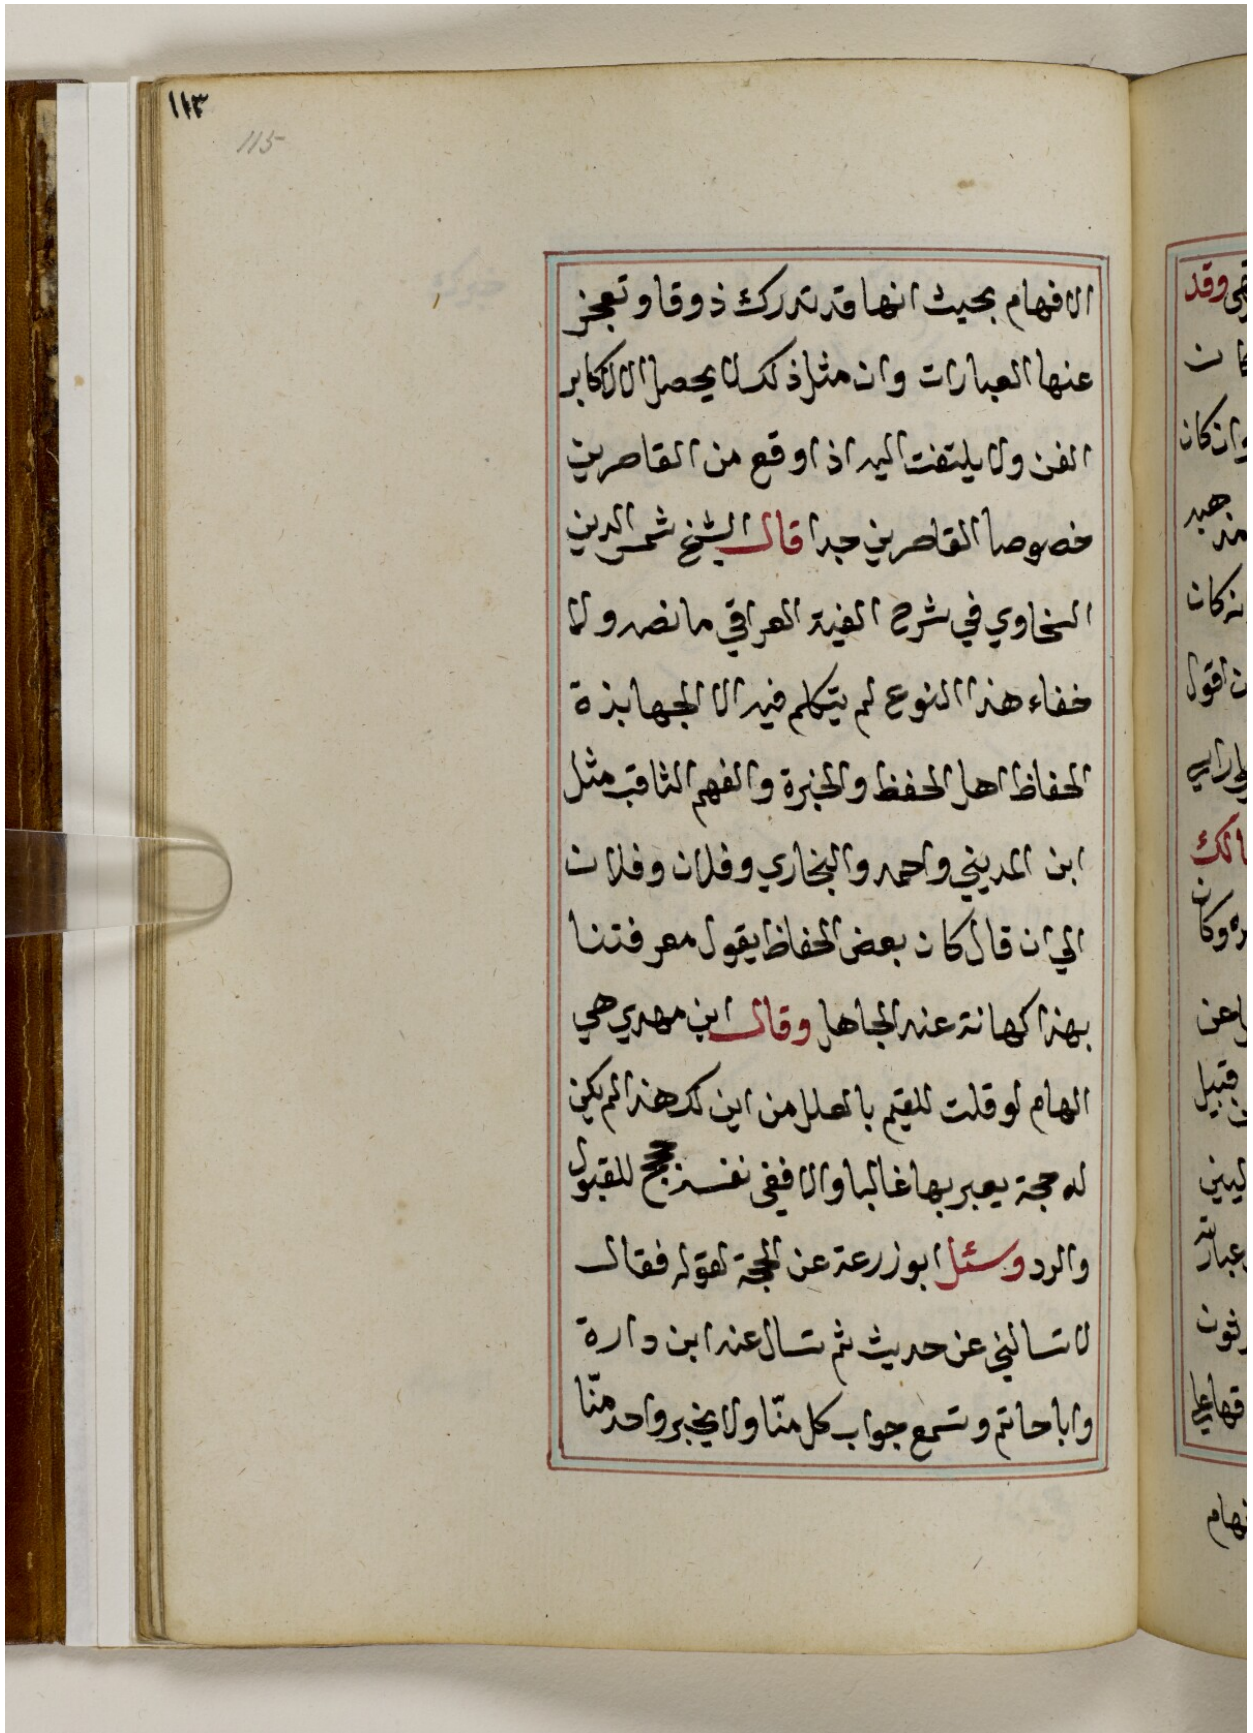 ١١٣
115
الافهام بحيث انها قد تدرك ذوقا وتعجز
عنها العبارات وان مثل ذلك لا يحصل الا لاكابر
الفن ولا يلتفت اليه اذا وقع من القاصرين
خصوصا القاصرين جدا قال الشيخ شمس الدين
السخاوي في شرح الفية العراقي ما نصه ولا
خفاء هذا النوع لم يتكلم فيه الا الجهابذة
الحفاظ اهل الحفظ والخبرة والفهم الثاقب مثل
ابن المديني واحمد والبخاري وفلان وفلان
الي ان قال كان بعض الحفاظ يقول معرفتنا
بهذا كهانة عند الجاهل وقال ابن مهدي هي
الهام لو قلت للقيم بالعلل من اين لك هذا لم يكن
له حجة يعبر بها غالبا والا ففي نفسه حجج للقبول
والرد وسئل ابو زرعة عن الحجة لقوله فقال
لا تسالني عن حديث ثم تسال عنه ابن دارة
وابا حاتم وتسمع جواب كل منّا ولا يخبر واحد منّا
وقد
وان كان
اقول
مالك
وكان
عن
قبيل